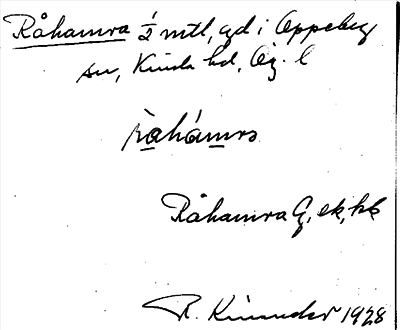 Råhamra ½ mtl, gd i Oppeby
sn, Kinda hd, Ög. l
ràhámra
Råhamra G, ek, kk
R. Kinander 1928